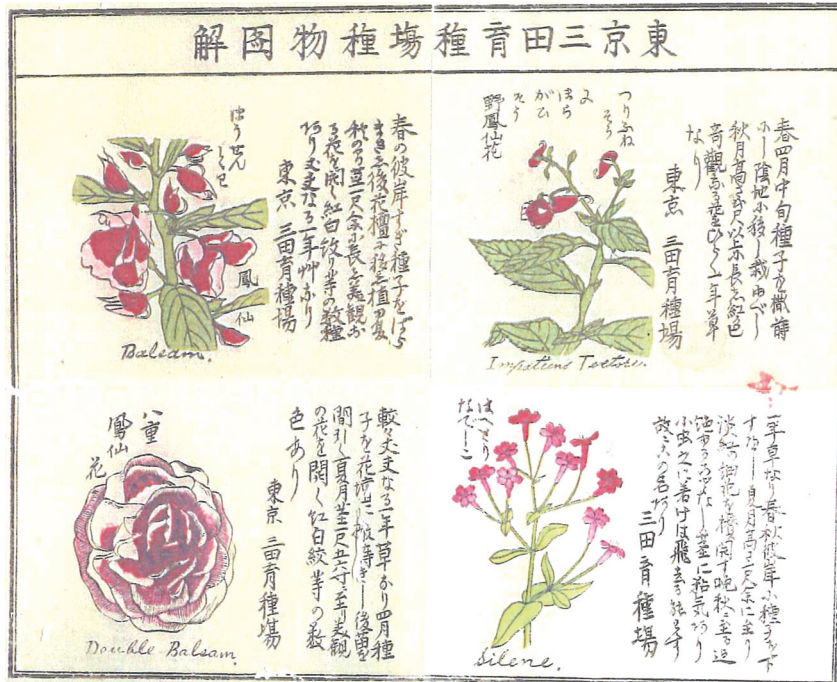 東京三田育種塲種物図解
春四月中旬種子を撒蒔
し陰地に移し栽ゆべし
秋月高さ弐尺以上に長じ紅色
奇觀なる花をひらく一年草
なり
東京 三田育種場
つりふね
そう
又
はら
がひ
そう
野鳳仙花
Impatiens Textori.
春の彼岸すぎ種子をばら
まき之後花壇に移し植
莖一尺余に長じ美観な
る花を開く紅白絞り等の数種
あり丈夫なる一年艸なり
東京 三田育種場
ほうせん
くわ
鳳仙
Balsam.
一年草なり春秋彼岸に種子を下
すべし夏月高さ一尺余に至り
淡紅の細花を攅開す晩秋に至る迄
絶ゆる なし莖に粘気あり
小虫之に着けば飛去る能はず
故に の名あり
三田育種場
はへとり
なでしこ
Silene.
較々丈夫なる一年草なり四月種
子を花壇に 蒔きし後苗を
間引く夏月莖尺五六寸に至り美観
の花を開く紅白絞等の数
色あり
東京 三田育種場
八重
鳳仙
花
Double Balsam.